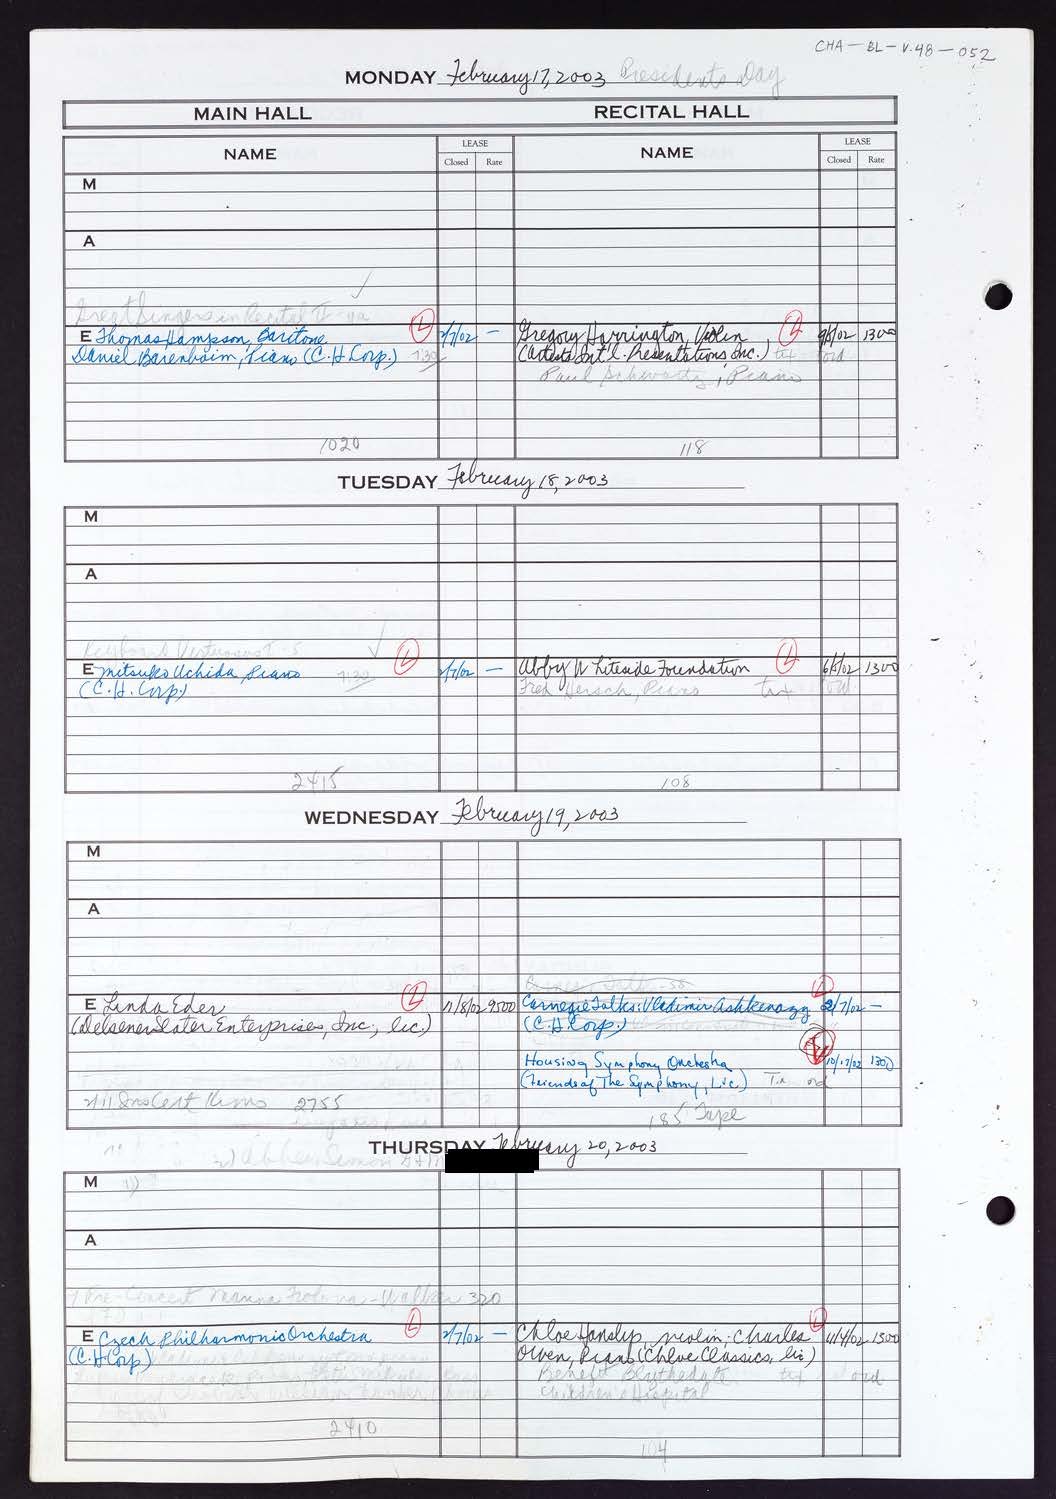 CHA-BL-V.48-052
MONDAY February 17, 2003 Presidents Day
MAIN HALL RECITAL HALL
NAME LEASE Closed Rate NAME LEASE Closed Rate
M
A
Great Singers in Recital II
E Thomas Hampson, Baritone L 2/7/02 – Gregory Harrington, Violin L 1300
Daniel Barenboim, Piano (C.H Corp.) 7:30 (Artists Int'l. Presentations Inc.) txt ord
Paul Schwartz, Piano
1020 118
TUESDAY February 18, 2003
M
A
Keyboard Virtuosos I-5
E Mitsuko Uchida, Piano 7:30 L 2/7/02 – Abby Whiteside Foundation L 6/5/02 1300
(C.H. Corp.) Fred Hersch, Piano txt ord
2415 108
WEDNESDAY February 19, 2003
M
A
E Linda Eder L 11/8/02 9500 Carnegie Talks: Vladimir Ashkenazy L 2/7/02 –
(Delsener Slater Enterprises, Inc., lic.) (C.H Corp.)
Housing Symphony Orchestra L 10/17/02 1300
(Friends of The Symphony, Lic.) Tx ord
2755
185 Tape
THURSDAY February 20, 2003
M
A
Pre-Concert 320
E Czech Philharmonic Orchestra L 2/7/02 – Chloe Hanslip, violin; Charles L 11/4/02 1500
(C.H Corp) Owen, Piano (Chloe Classics, lic)
Benefit Blythedale txt ord
Children's Hospital
2410
104